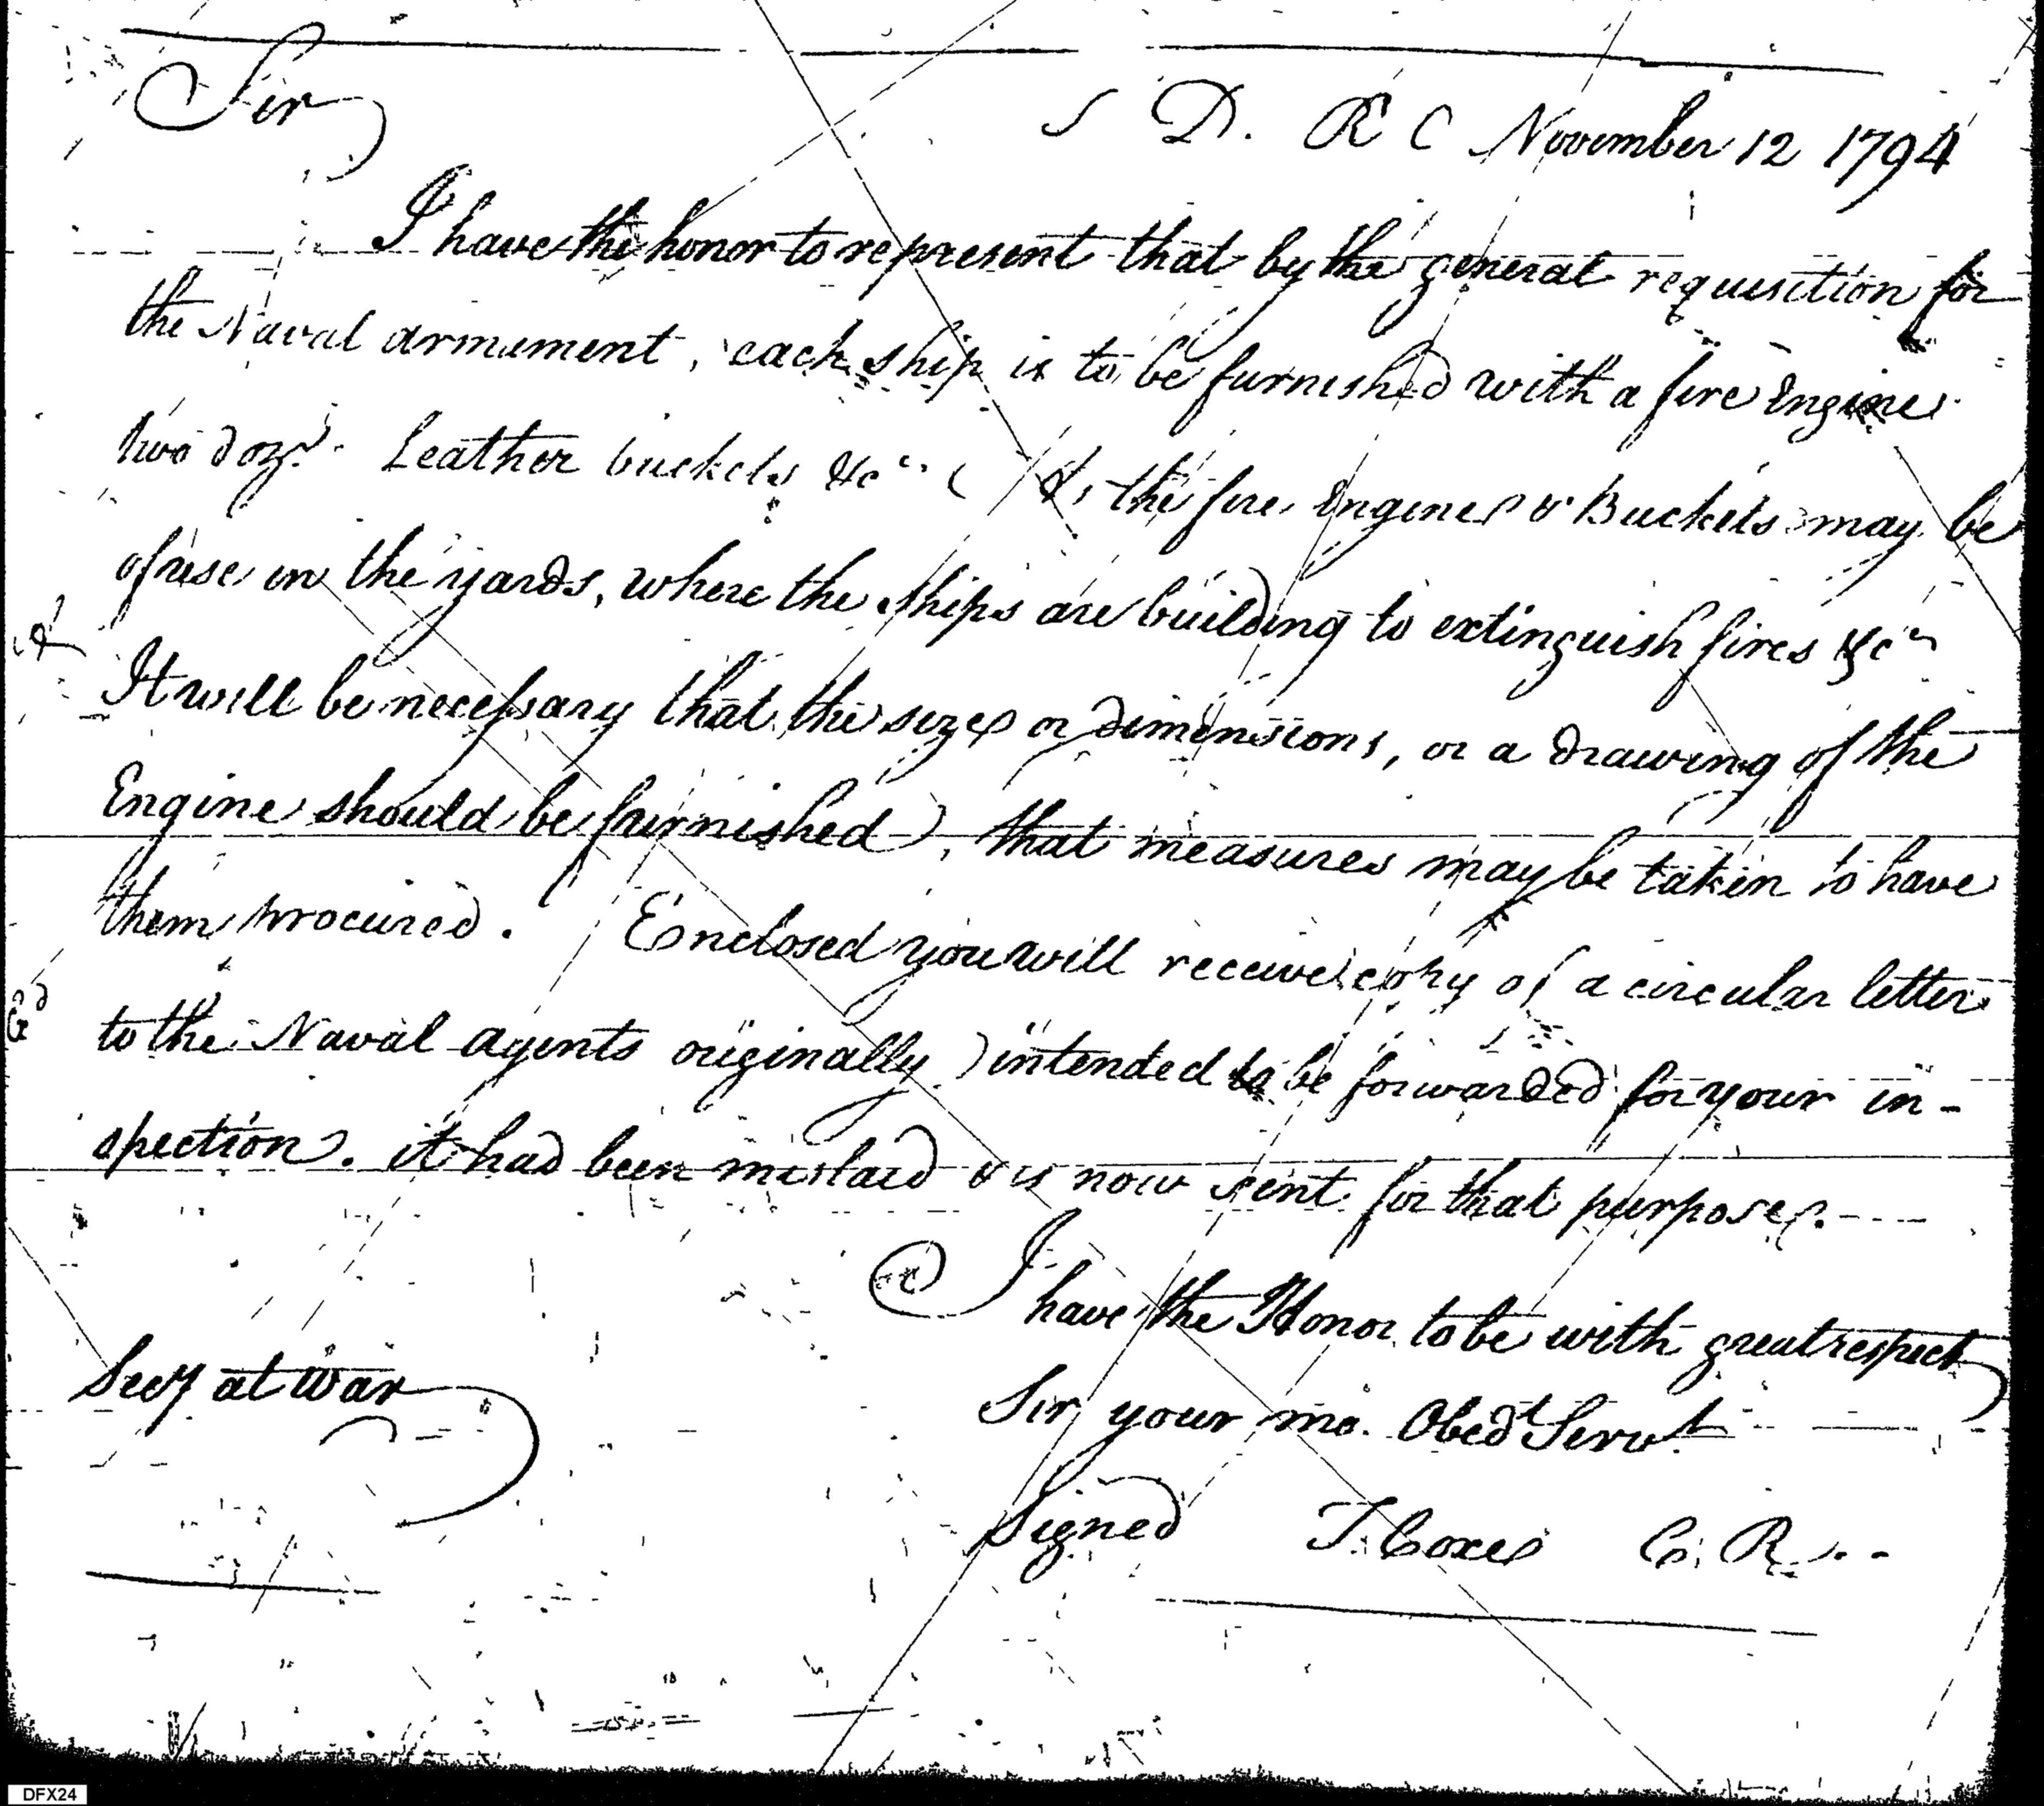 Sir
D. R C November 12 1794
I have the honor to represent that by the general requisition for
the Naval armament, each ship is to be furnished with a fire Engine
two dozn. Leather buckets &ca. As the fire Engines & Buckets may be
of use in the yards, where the ships are building to extinguish fires &ca
It will be necessary that the sizes or dimensions, or a drawing of the
Engine should be furnished, that measures may be taken to have
them procured. Enclosed you will receive copy of a circular letter
to the Naval agents originally intended to be forwarded for your in-
spection. it had been mislaid & is now sent for that purpose.
I have the Honor to be with great respect
Secy at War
Sir your mo. Obedt Servt
Signed T. Coxe C. R.
DFX24